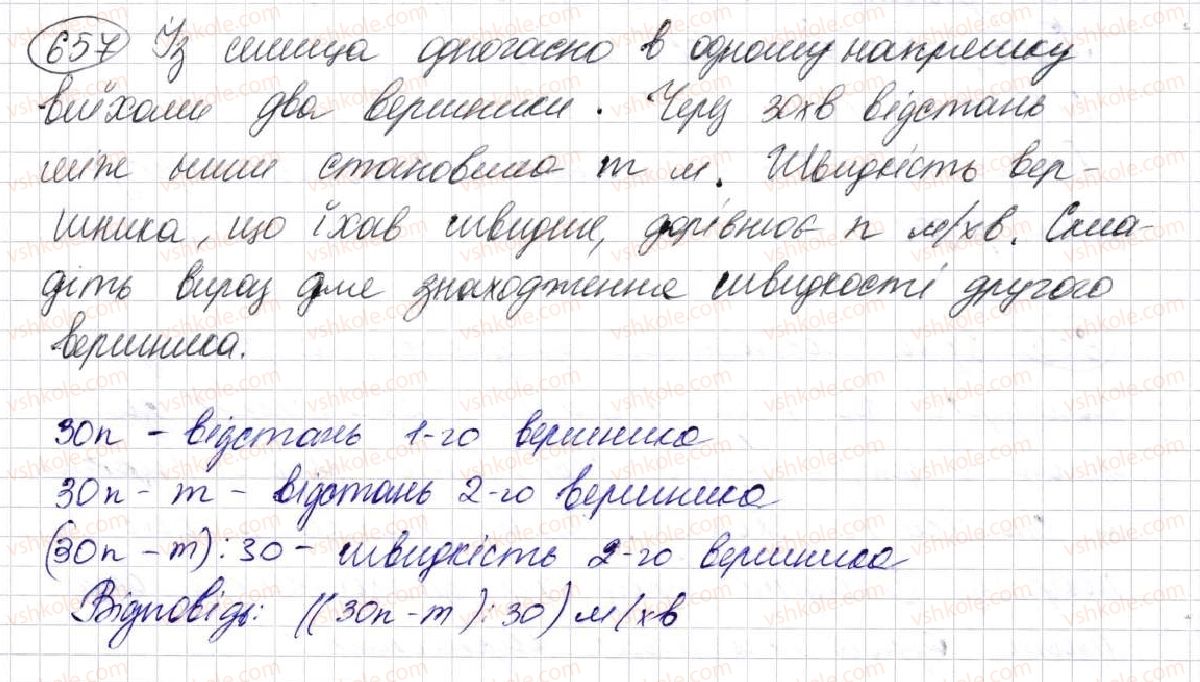 657 Із селища одночасно в одному напрямку
виїхали два вершники. Через 30хв відстань
між ними становила m м. Швидкість вер-
шника, що їхав швидше, дорівнює n м/хв. Скла-
діть вираз для знаходження швидкості другого
вершника.
30n - відстань 1-го вершника
30n - m - відстань 2-го вершника
(30n - m) : 30 - швидкість 2-го вершника
Відповідь: ((30n - m) : 30) м/хв